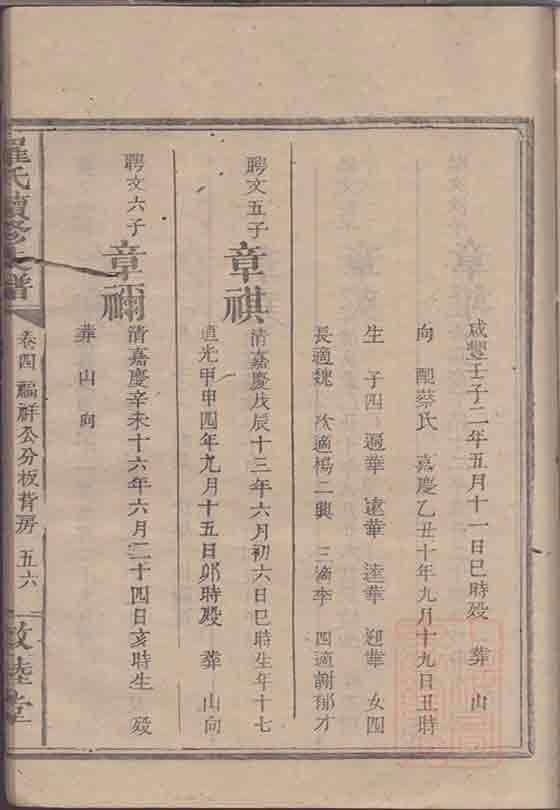 咸豐壬子二年五月十一日巳時殁 葬 山
向 配蔡氏 嘉慶乙丑十年九月十九日丑時
生 子四 邇華 遠華 逵華 迎華 女四
長適魏 次適楊二興 三適李 四適謝郁才
聘文五子
章祺
清嘉慶戊辰十三年六月初六日巳時生年十七
道光甲申四年九月十五日卯時殁 葬 山向
聘文六子
章禰
清嘉慶辛未十六年六月二十四日亥時生 殁
葬 山 向
羅氏續修 譜
卷四 福祥公分板背房 五六
敦睦堂